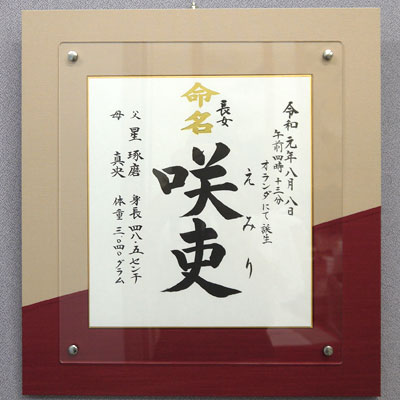 令和元年八月八日
午前四時十三分
オランダにて誕生
えみり
長女
命名
咲吏
父 星 琢磨
母 真央
身長 四八・五センチ
体重 三、〇四〇グラム